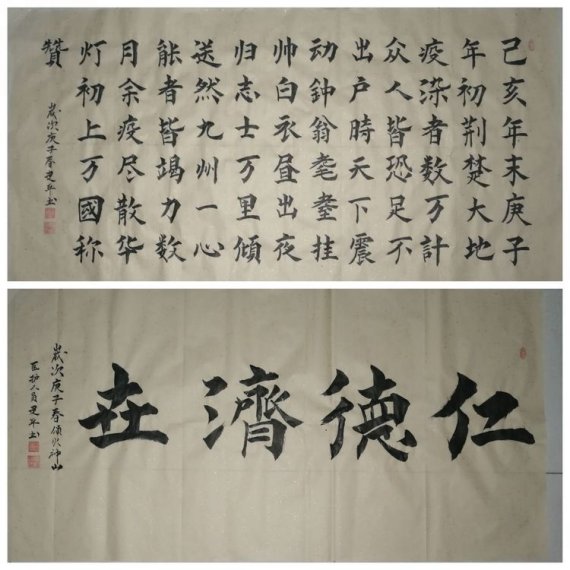 己亥年末庚子
年初荆楚大地
疫染者数万計
众人皆恐足不
出户時天下震
动鈡翁耄耋挂
帅白衣昼出夜
归志士万里傾
送然九州一心
能者皆竭力数
月余疫尽散华
灯初上万國称
贊
歲次庚子春书
仁德濟世
歲次庚子春颂火神山
医护人员书